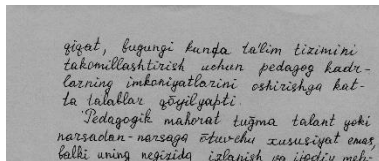 qiqat, bugungi kunda ta'lim tizimini
takomillashtirish uchun pedagog kadr-
larning imkoniyatlarini oshirishga kat-
ta talablar qõyilyapti.
Pedagogik mahorat tuğma talant yoki
narsadan-narsaga õtuvchi xususiyat emas,
balki uning negizida izlanish va ijodiy meh-